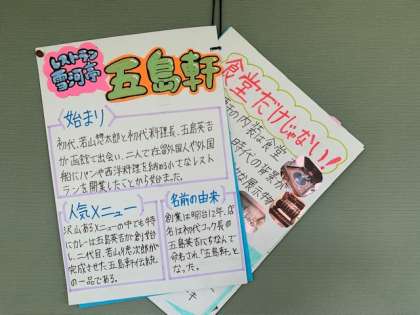 レストラン
雪河亭
五島軒
始まり
初代、若山惣太郎と初代料理長、五島英吉
が函館で出会い、二人で在留外国人や外国
船にパンや西洋料理を納めたてなレスト
ランを開業したことから始まった。
人気メニュー
沢山あるメニューの中でも特
にカレーは五島英吉が創り出
し、二代目、若山徳次郎が
完成させた五島軒伝統
の一品である。
名前の由来
創業は明治12年、店
名は初代コック長の
五島英吉にちなんで
命名され「五島軒」と
なった。
食堂だけじゃない!
軒の内装は食堂
時代の背景が
な展示物